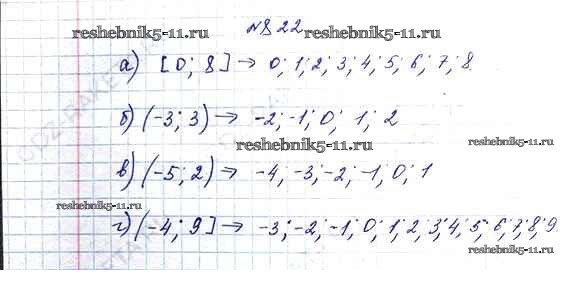 №822
reshebnik5-11.ru reshebnik5-11.ru
а) [0; 8] → 0; 1; 2; 3; 4; 5; 6; 7; 8.
reshebnik5-11.ru
б) (-3; 3) → -2; -1; 0; 1; 2
reshebnik5-11.ru
в) (-5; 2) → -4; -3; -2; -1; 0; 1
reshebnik5-11.ru
г) (-4; 9] → -3; -2; -1; 0; 1; 2; 3; 4; 5; 6; 7; 8; 9.
reshebnik5-11.ru